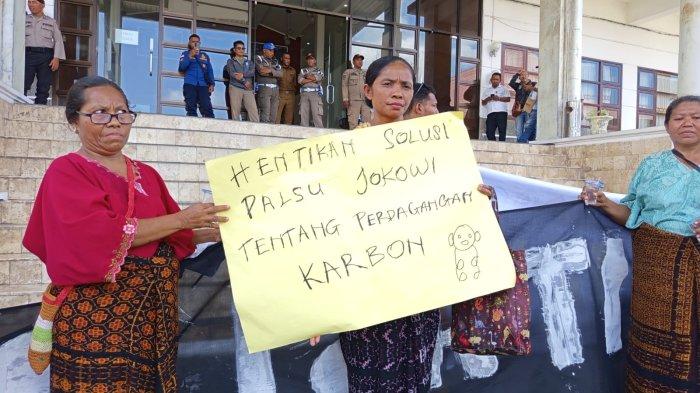 HENTIKAN SOLUSI
PALSU JOKOWI
TENTANG PERDAGANGAN
KARBON